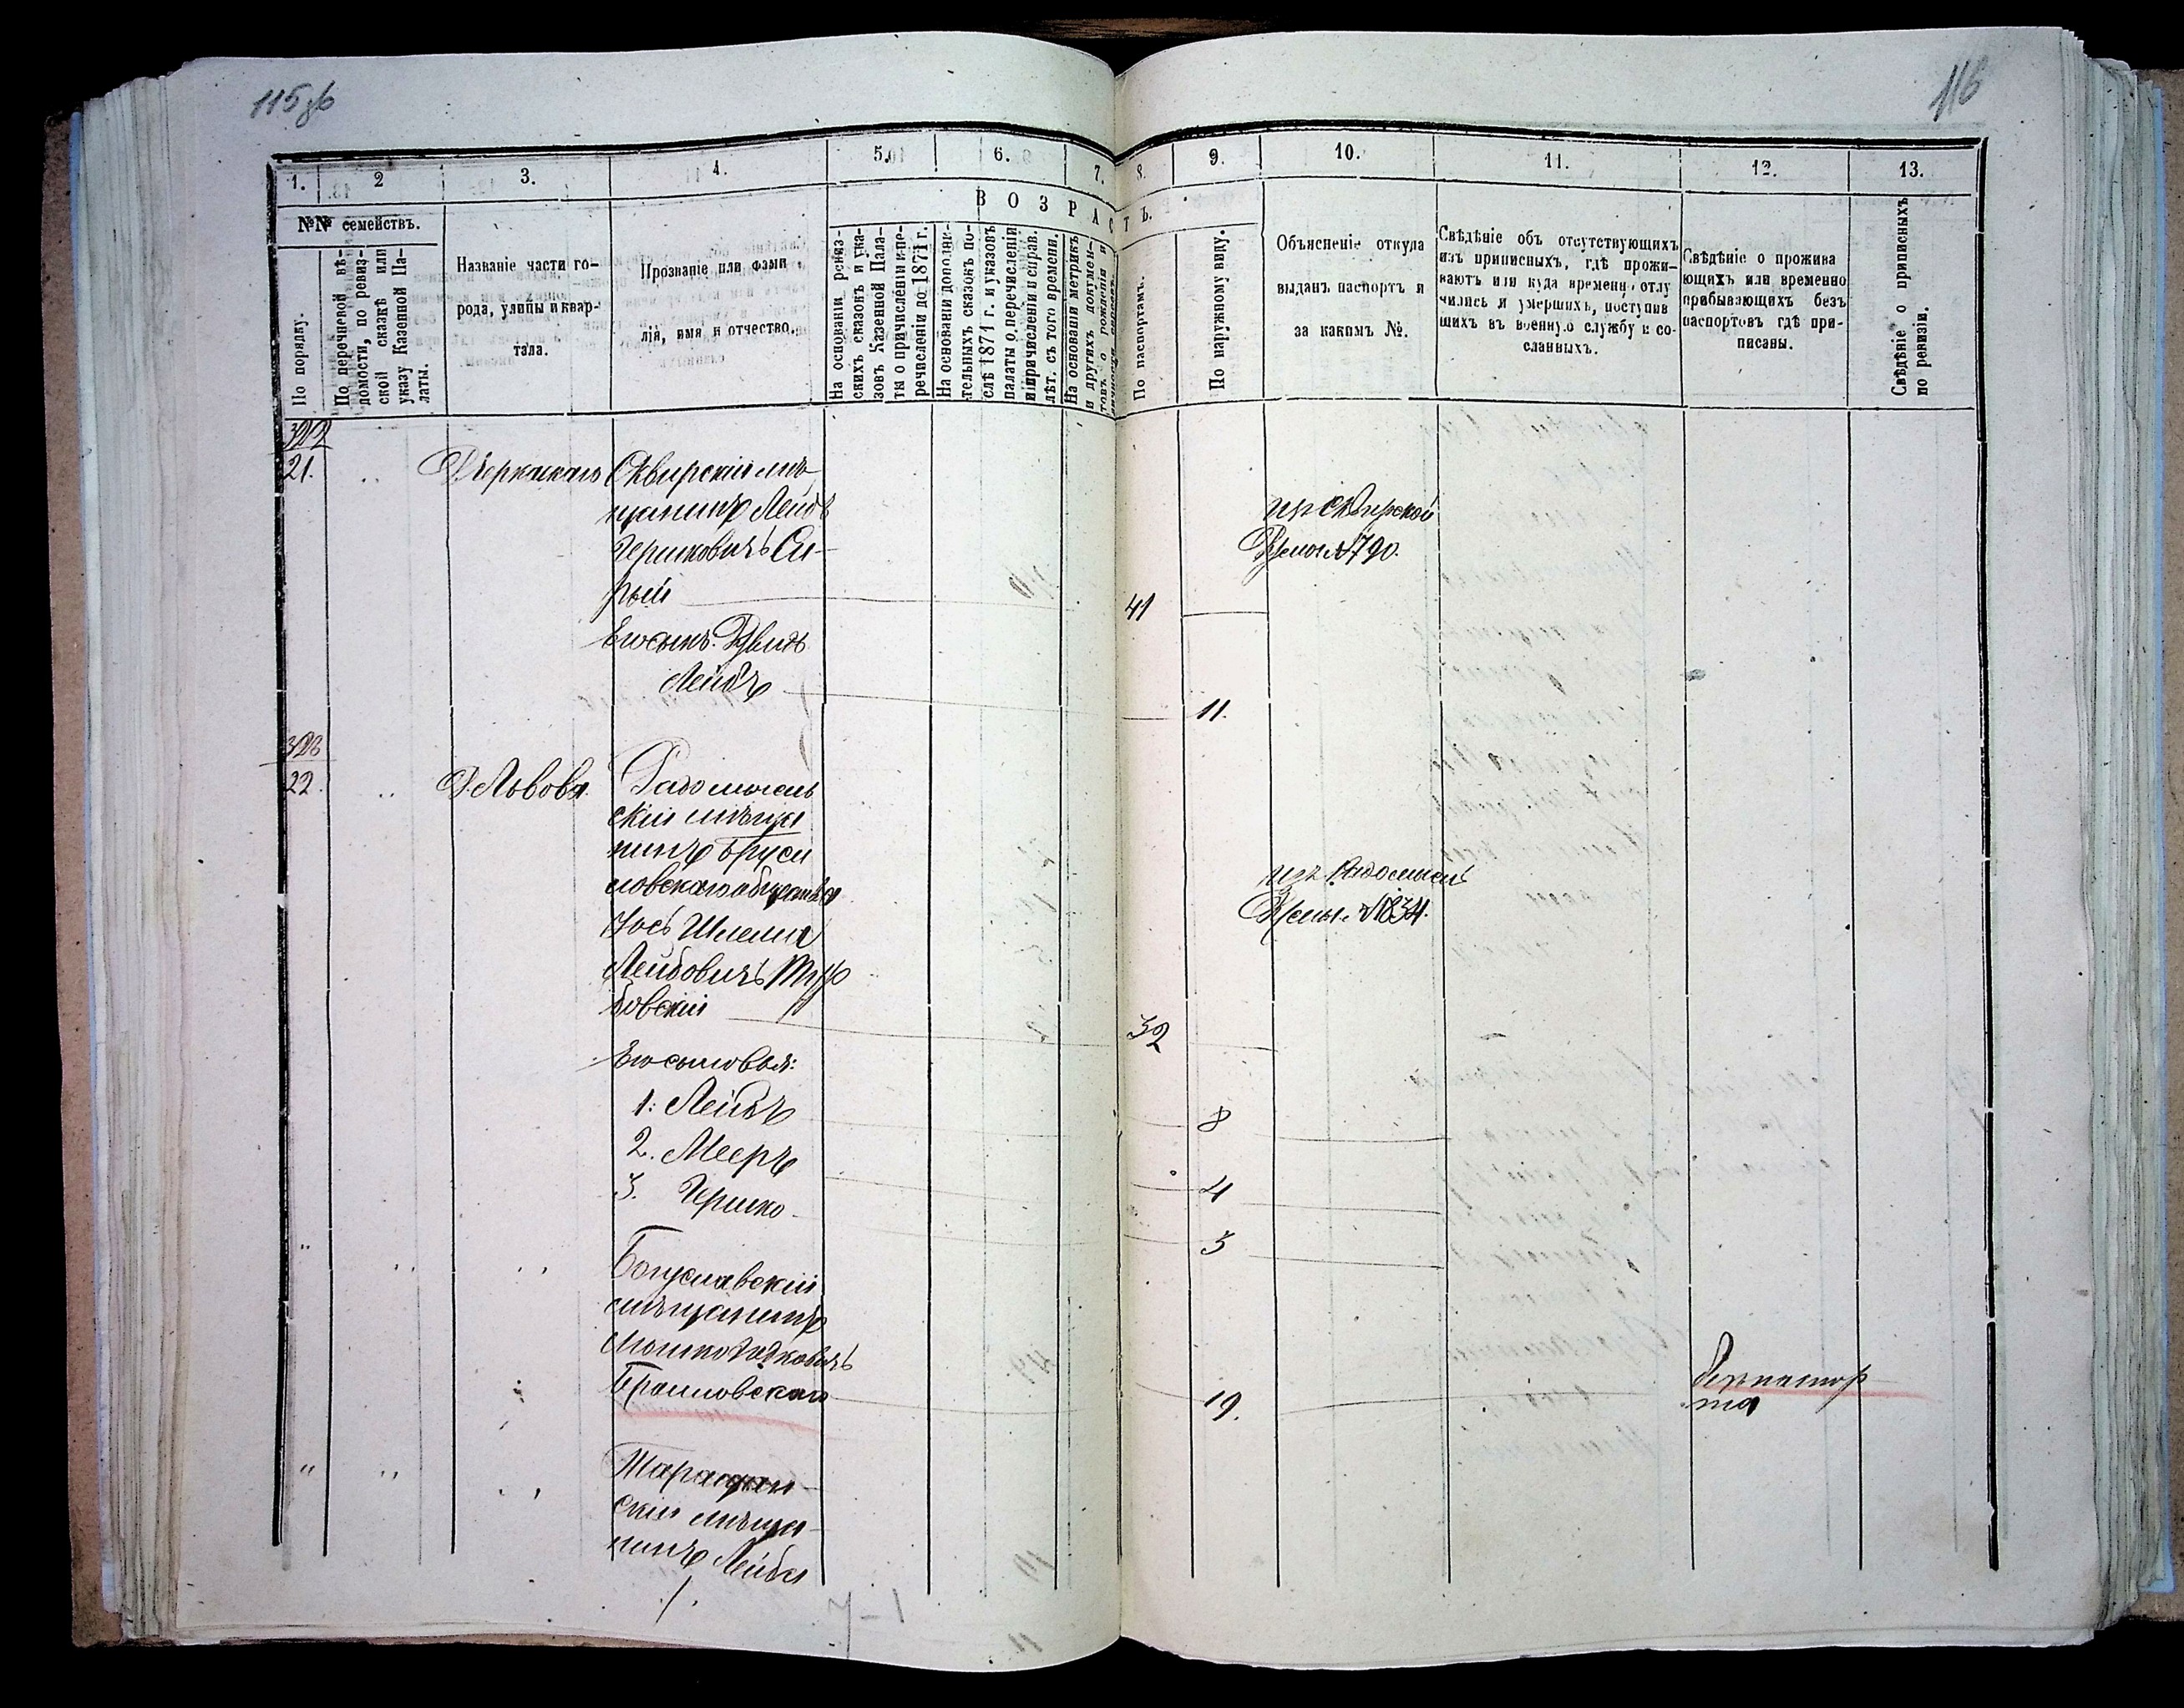 115об
116
1.
2
3.
4.
5.
6.
7.
8.
9.
10.
11.
12.
13.
№№ семействъ.
В О З Р А С Т Ъ.
По порядку.
По перечневой вѣ-
домости, по ревиз-
ской сказкѣ или
указу Казенной Па-
латы.
Названіе части го-
рода, улицы и квар-
тала.
Прозваніе или фами
лія, имя и отчество.
На основаніи ревиз-
скихъ сказокъ и ука-
зовъ Казенной Пала-
ты о причисленіи и пе-
речисленіи до 1871 г.
На основаніи дополни-
тельныхъ сказокъ по-
слѣ 1871 г. и указовъ
палаты о перечисленіи
и причисленіи и справ.
лѣт. съ того времени.
На основаніи метрикъ
и другихъ докумен-
товъ о рожденіи и
По паспортамъ.
По наружному виду.
Объясненіе откуда
выданъ паспортъ и
за какимъ №.
Свѣдѣніе объ отсутствующихъ
изъ приписныхъ, гдѣ прожи-
ваютъ или куда временно отлу
чились и умершихъ, поступив
шихъ въ военную службу и со-
сланныхъ.
Свѣдѣніе о прожива
ющихъ или временно
прибывающихъ безъ
паспортовъ гдѣ при-
писаны.
Свѣдѣніе о приписныхъ
по ревизіи.
322
21.
Сквирскій мѣ-
щанинъ Лейбъ
Гершковичъ Си-
рый
41
изъ Сквирской
№ 790.
Его сынъ:
Лейбъ
11.
323
22.
Д. Львова.
Радомысль
скій мѣща
нинъ Бруси
ловскаго общества
Іось Шлема
Лейбовичъ
бовскій
32
изъ Радомысль
№ 1834.
Его сыновья:
1. Лейбъ
8
2. Мееръ
4
3. Гершко
3
Богуславскій
мѣщанинъ
Мошко Юдковичъ
Браиловскаго
19.
безъ паспор
та
Таращан-
скій мѣща-
нинъ Лейба